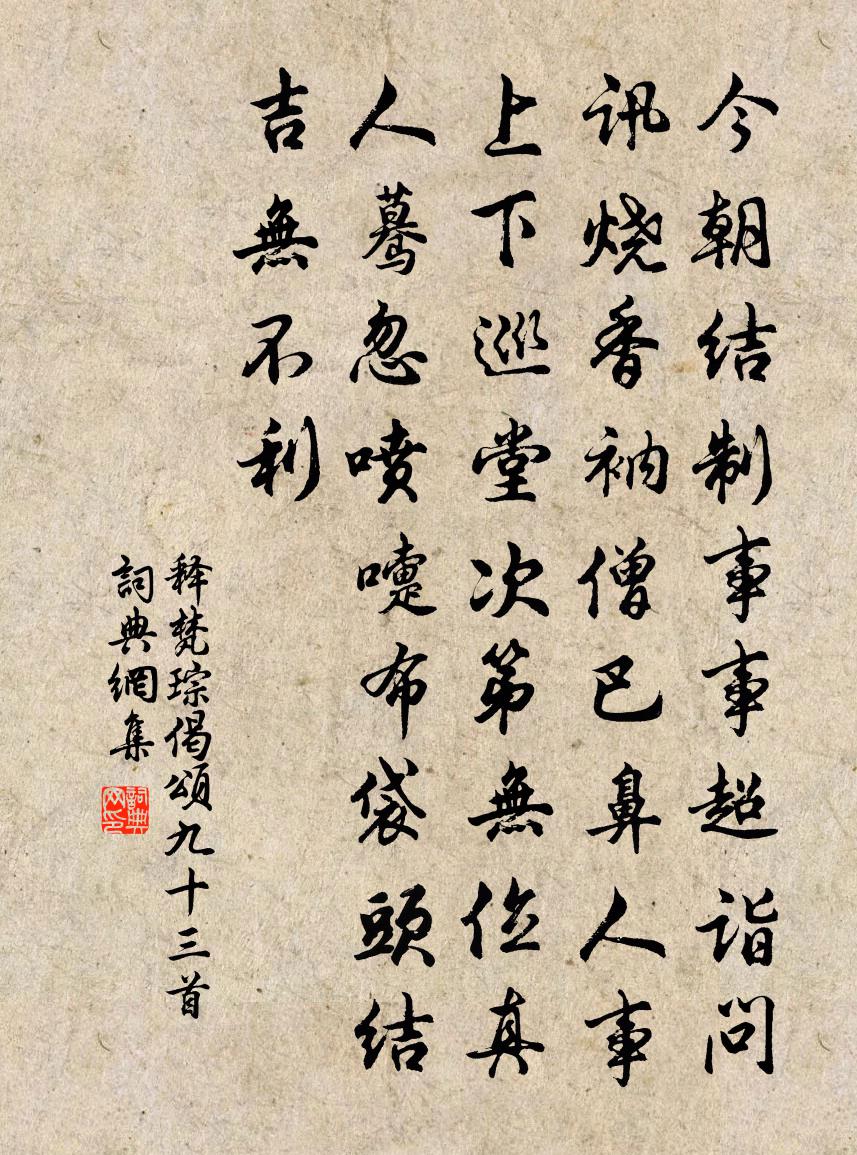 今朝结制事事超诣问
讯烧香衲僧巴鼻人事
上下巡堂次第無位真
人蓦忽喷嚏布袋頭结
吉無不利
释梵琮偈頌九十三首
詞典網集